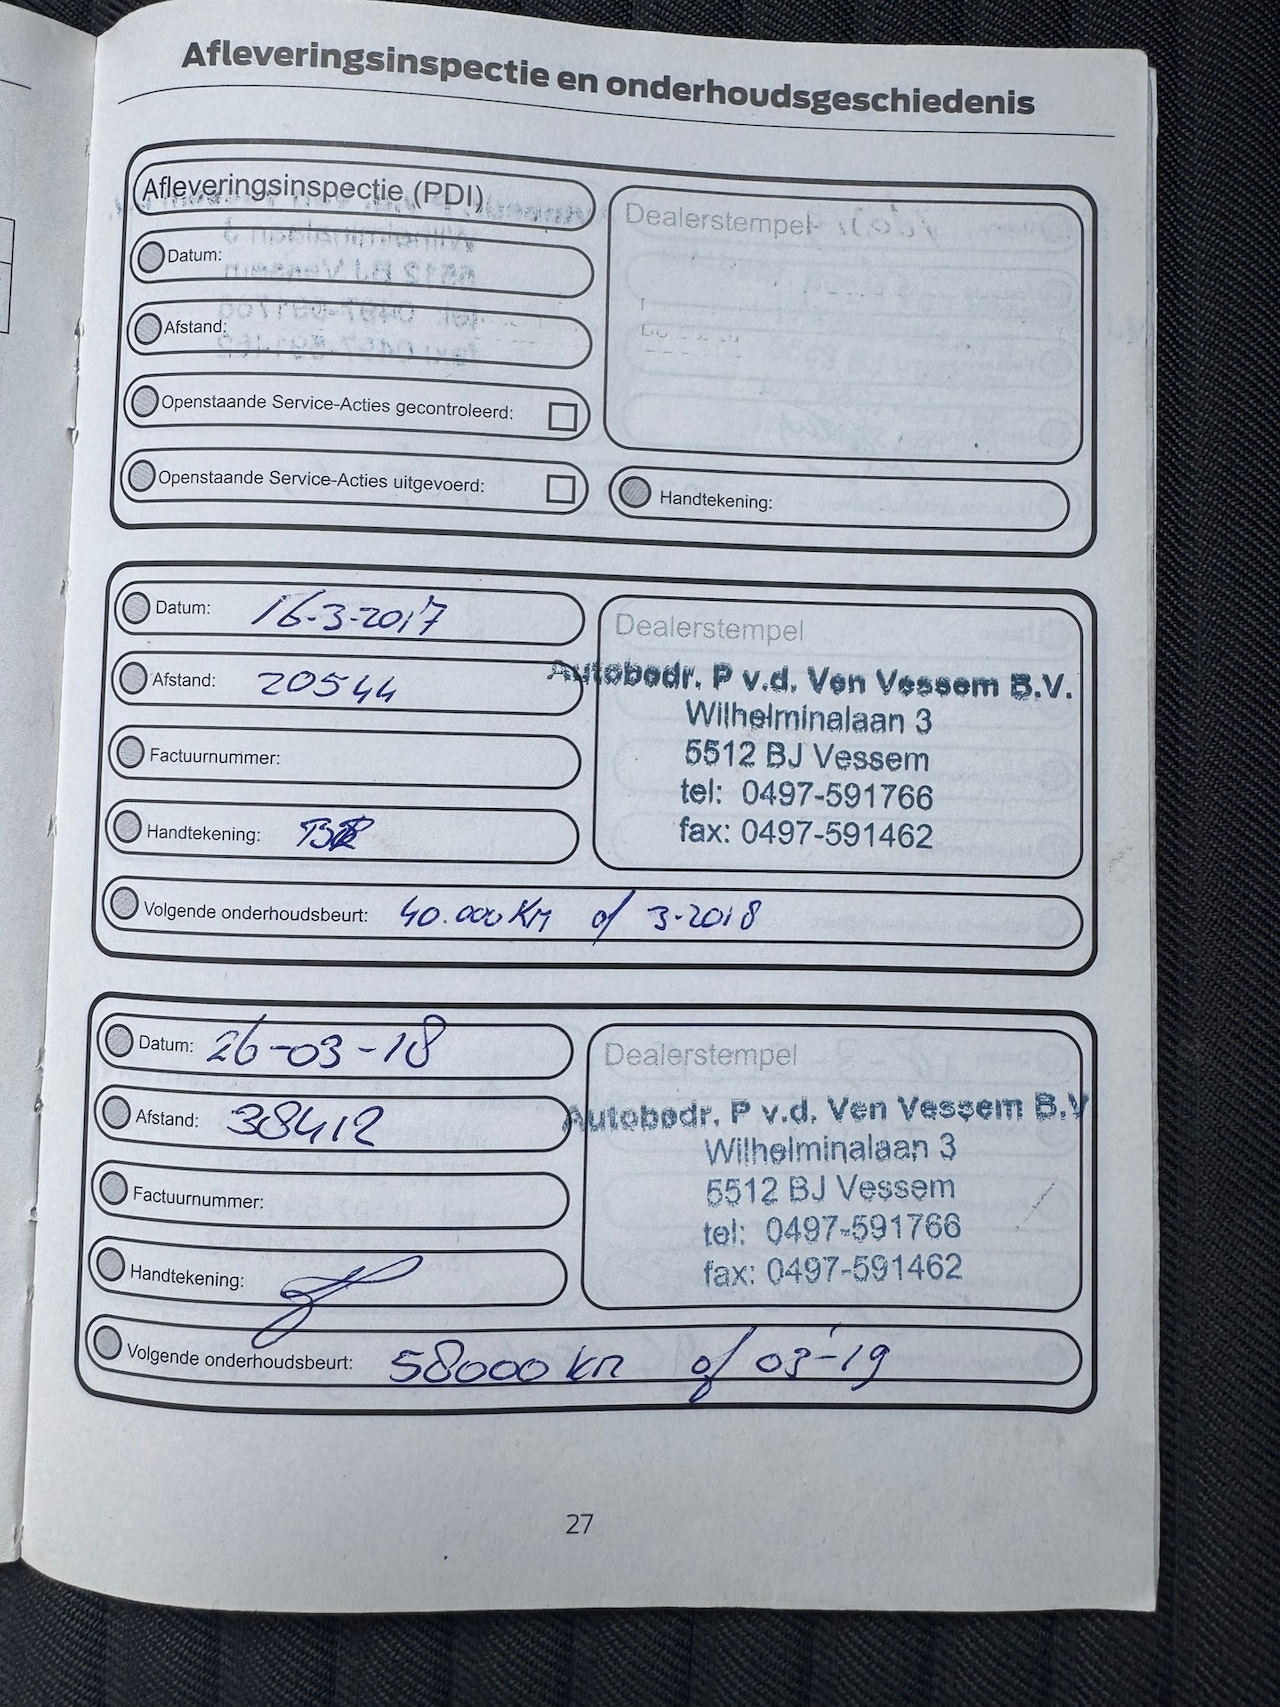 Afleveringsinspectie en onderhoudsgeschiedenis
Afleveringsinspectie (PDI)
Datum:
Afstand:
Openstaande Service-Acties gecontroleerd:
Openstaande Service-Acties uitgevoerd:
Dealerstempel
Handtekening:
Datum: 16-3-2017
Afstand: 20544
Factuurnummer:
Handtekening:
Volgende onderhoudsbeurt: 40.000 KM of 3-2018
Dealerstempel
Autobedr. P v.d. Ven Vessem B.V.
Wilhelminalaan 3
5512 BJ Vessem
tel: 0497-591766
fax: 0497-591462
Datum: 26-03-18
Afstand: 38412
Factuurnummer:
Handtekening:
Volgende onderhoudsbeurt: 58000 km of 03-19
Dealerstempel
Autobedr. P v.d. Ven Vessem B.V
Wilhelminalaan 3
5512 BJ Vessem
tel: 0497-591766
fax: 0497-591462
27